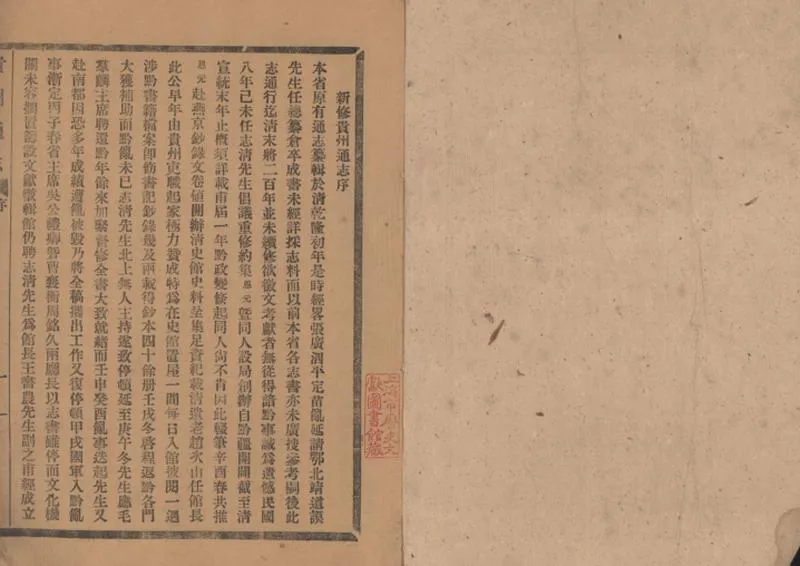 新修貴州通志序
本省原有通志纂輯於清乾隆初年是時經畧張廣泗平定苗亂延請鄂北靖道謨
先生任總纂倉卒成書未經詳採志料而以前本省各志書亦未廣搜參考嗣後此
志通行迄清末將二百年並未續修欲徵文考獻者無從得諳黔事誠為遺憾民國
八年己未任志清先生倡議重修約集恩元曁同人設局創辦自黔疆開闢截至清
宣統末年止概須詳載甫屆一年黔政變倏起同人尚不肯因此輟筆辛酉春共推
恩元赴燕京鈔錄文卷值開辦清史館史料坌集足資紀載清遺老趙次山任館長
此公早年由貴州吏職起家極力贊成特為在史館置屋一間每日入館披閱一過
涉黔書籍檔案即飭書記鈔錄幾及兩載得鈔本四十餘册壬戌冬啓程返黔各門
大獲補助而黔亂未已志清先生北上無人主持遂致停頓延至庚午冬先生應毛
羣麟主席聘還黔年餘來加緊督修全書大致就緒而壬申癸酉亂事迭起先生又
赴南都因恐多年成績遭亂被毀乃將全稿攜出工作又復停頓甲戌國軍入黔亂
事漸定丙子春省主席吳公禮卿曁曹襄衡周銘久兩廳長以志書雖停而文化機
關未容擱置籌設文獻徵輯館仍聘志清先生為館長王書農先生副之甫經成立
貴州通志
序
一
上海市歷史文獻圖書館藏